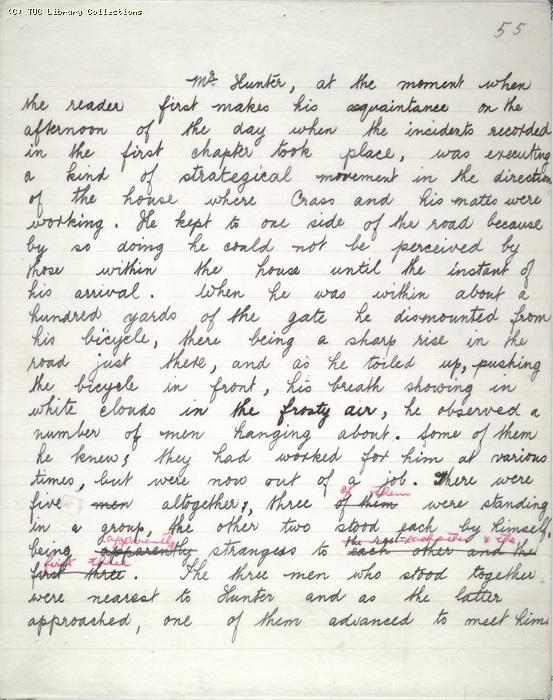 (c) TUC Library Collections
55
Mr. Hunter, at the moment when
the reader first makes his acquaintance on the
afternoon of the day when the incidents recorded
in the first chapter took place, was executing
a kind of strategical movement in the direction
of the house where Crass and his mates were
working. He kept to one side of the road because
by so doing he could not be perceived by
those within the house until the instant of
his arrival. When he was within about a
hundred yards of the gate he dismounted from
his bicycle, there being a sharp rise in the
road just there, and as he toiled up, pushing
the bicycle in front, his breath showing in
white clouds in the frosty air, he observed a
number of men hanging about. Some of them
he knew; they had worked for him at various
times, but were now out of a job. There were
of them
five men altogether; three of them were standing
in a group, the other two stood each by himself,
apparently each other & the
being apparently strangers to the rest each other and the
first three
first three. The three men who stood together
were nearest to Hunter and as the latter
approached, one of them advanced to meet him.